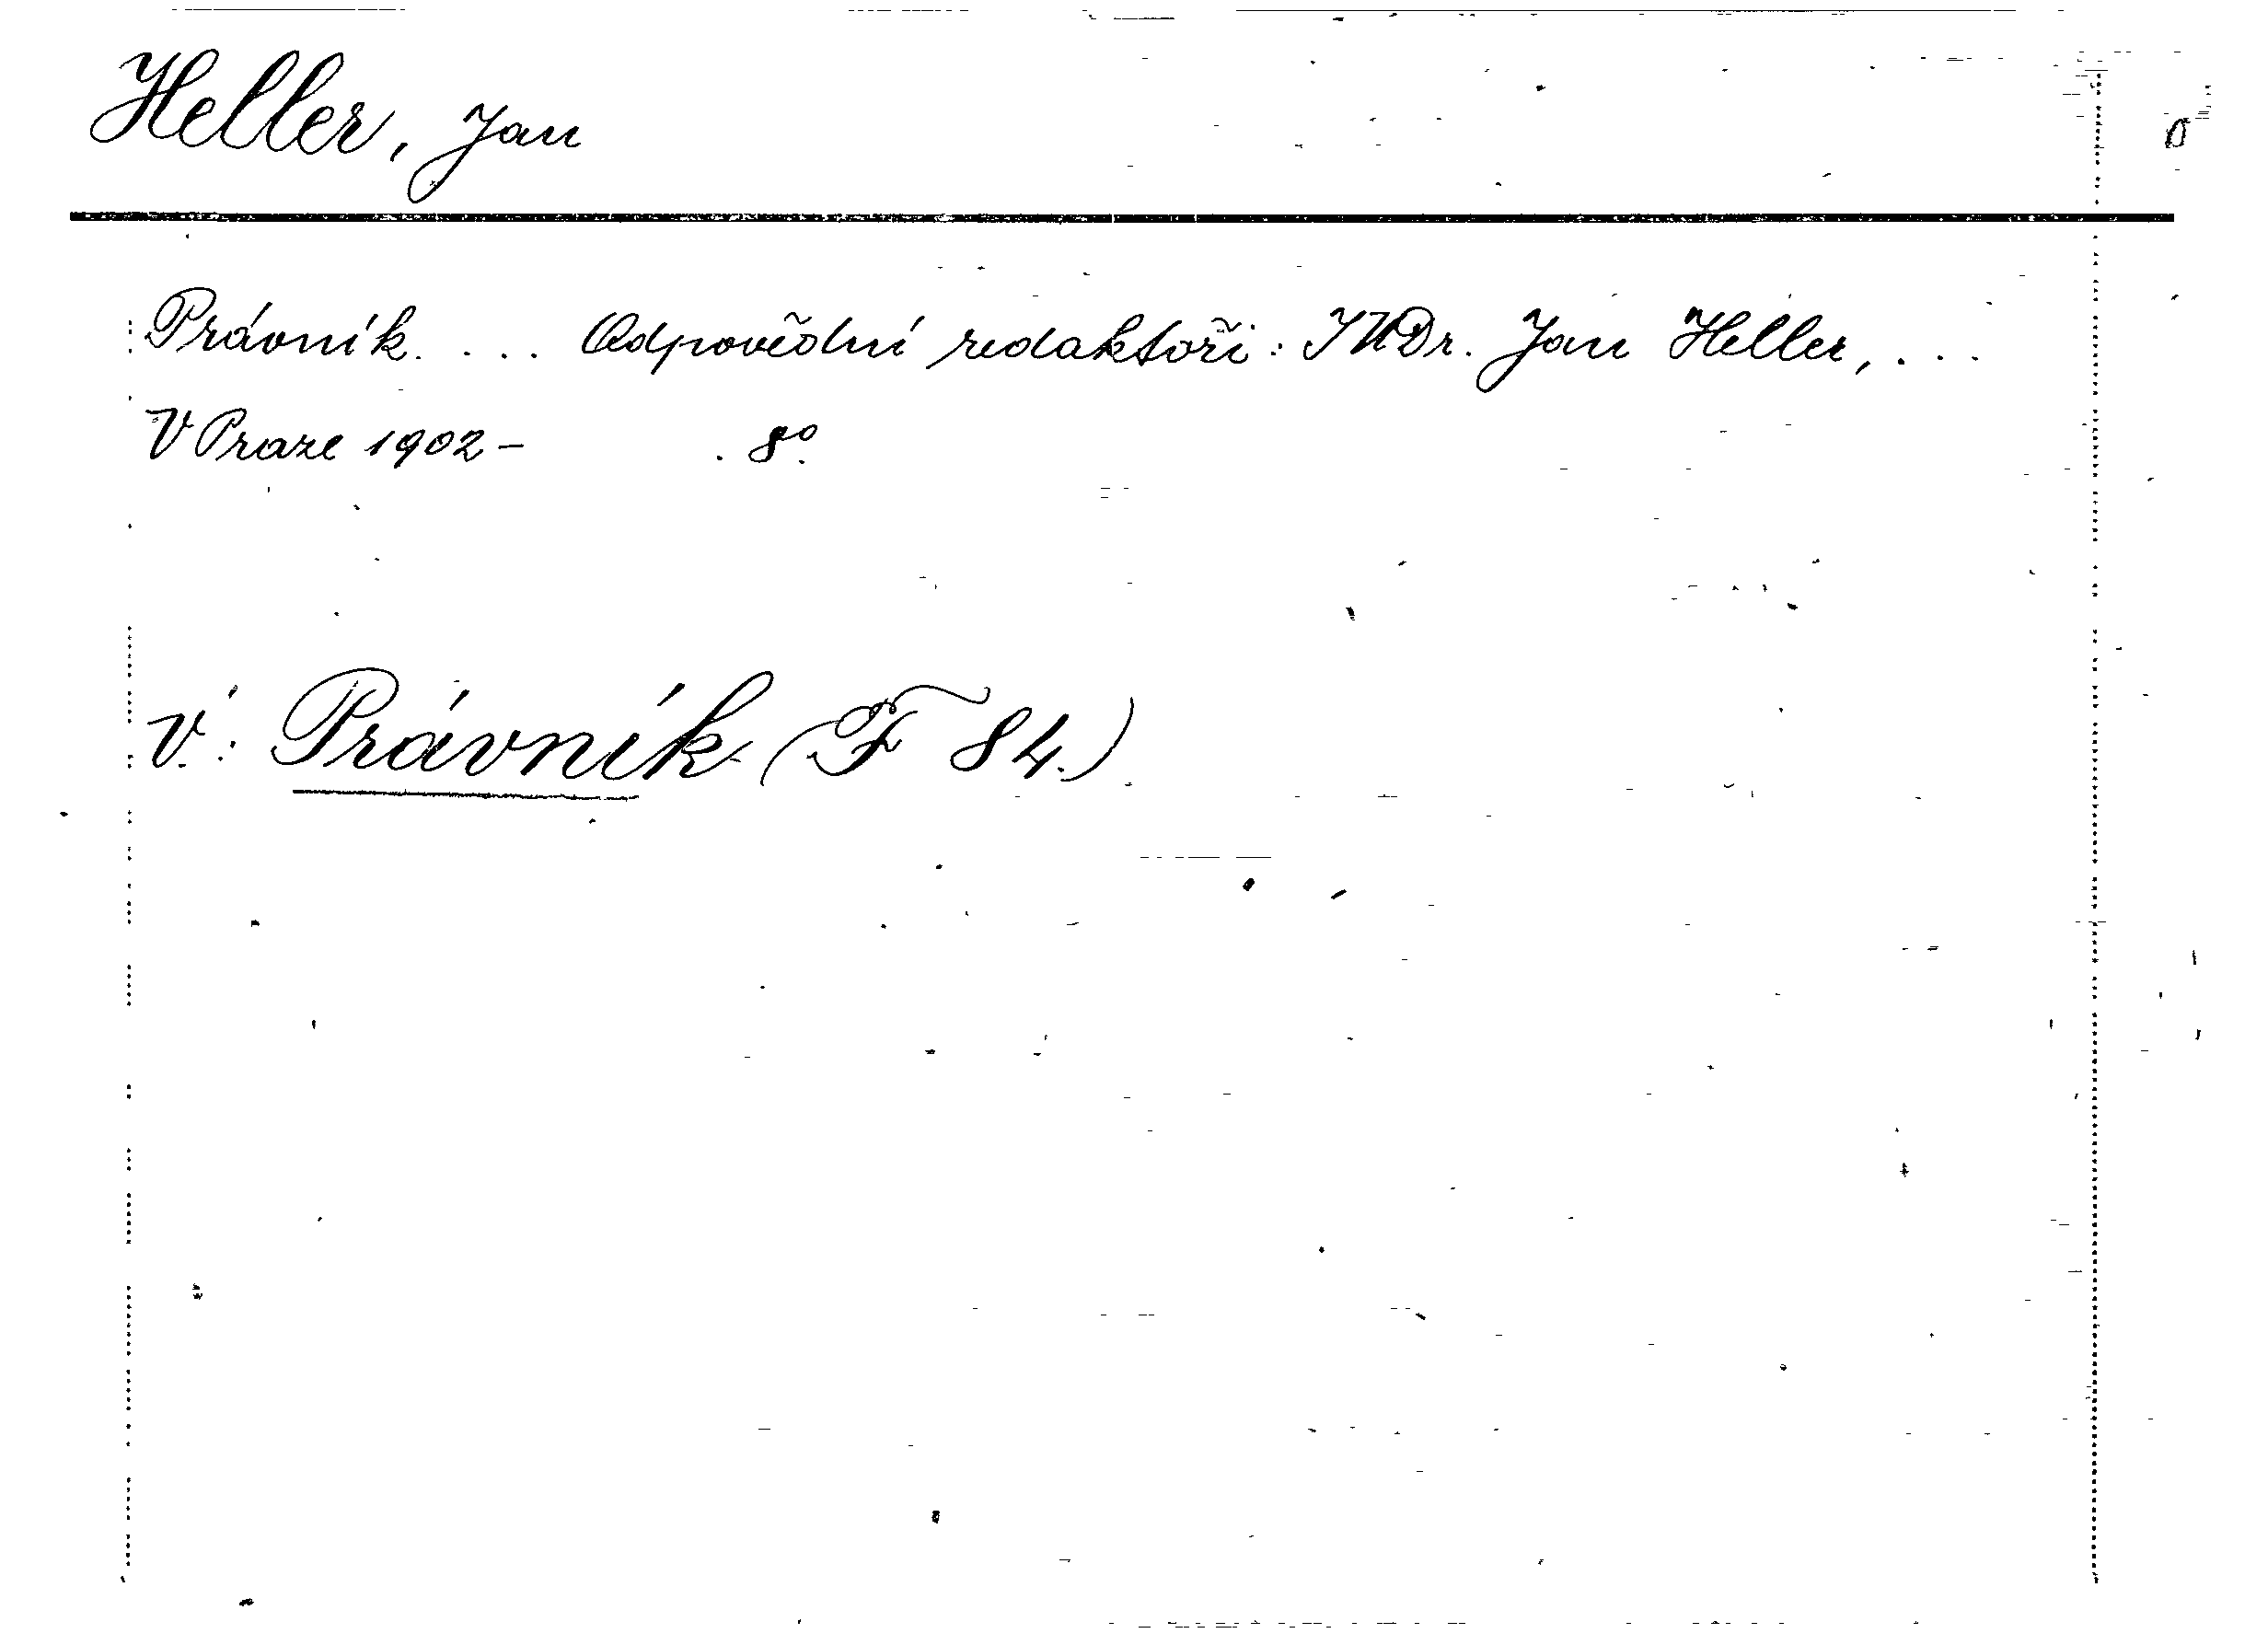 Heller, Jan
Právník. ... Odpovědní redaktoři: JUDr. Jan Heller, ...
V Praze 1902 - . 8º.
v: Právník (F 84.)